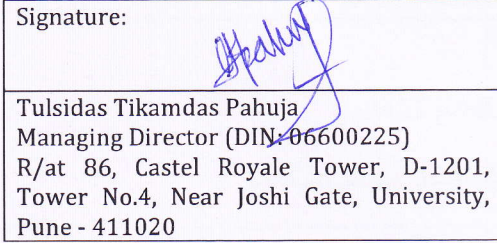 Signature:
Tulsidas Tikamdas Pahuja
Managing Director (DIN: 06600225)
R/at 86, Castel Royale Tower, D-1201,
Tower No.4, Near Joshi Gate, University,
Pune - 411020